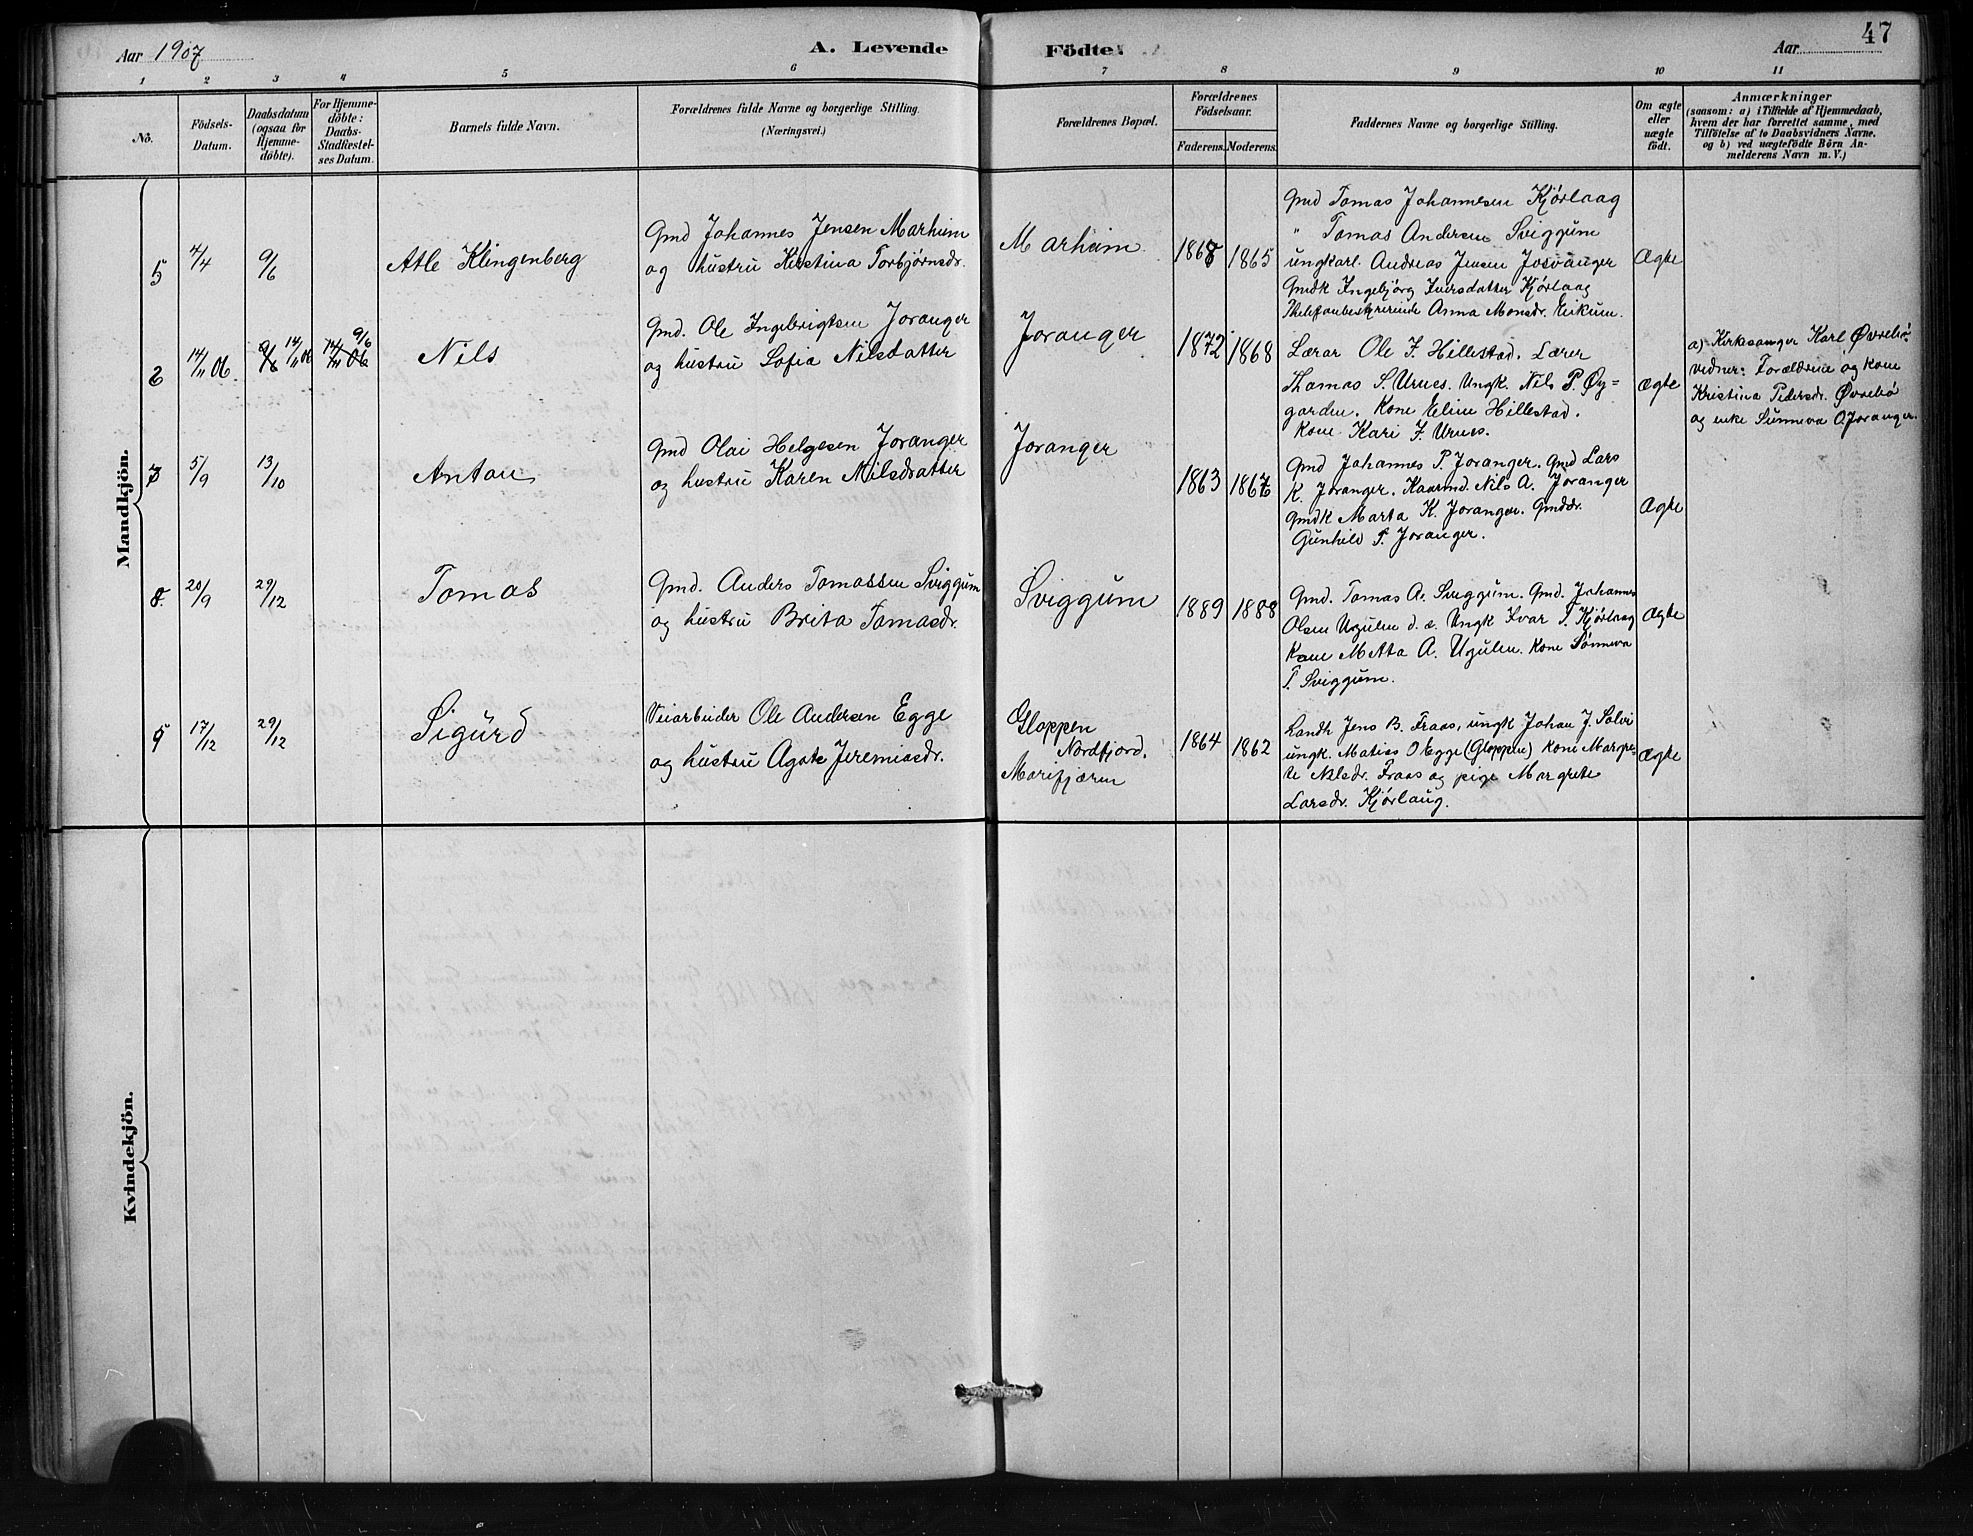 Aar 1907
A. Levende Födte.
Aar
47
1 2 3 4 5 6 7 8 9 10 11
No.
Födsels-
Datum.
Daabsdatum
(ogsaa for
Hjemme-
döbte).
For Hjemme-
döbte:
Daabs-
Stadfæstel-
ses Datum.
Barnets fulde Navn.
Forældrenes fulde Navne og borgerlige Stilling.
(Næringsvei.)
Forældrenes Bopæl.
Forældrenes
Födselsaar.
Faderens. Moderens.
Faddernes Navne og borgerlige Stilling.
Om ægte
eller
uægte
födt.
Anmærkninger
(saasom: a) i Tilfælde af Hjemmedaab,
hvem der har forrettet samme, med
Tilföielse af to Daabsvidners Navne.
og b) ved uægtefödte Börn An-
melderens Navn m. V.)
Mandkjön.
5
4/4
9/6
Atle Klingenberg
Gmd Johannes Jensen Marheim
og hustru Kristina Torbjørnsdr.
Marheim
1868 1865
Gmd Tomas Johannesen Kjørlaag
" Tomas Andersen Sviggum
ungkarl. Andreas Jensen Josvanger
Gmdk Ingebjørg Iversdatter Kjørlaag
Thelefonbestyrerinde Anna Monsdr. Eikum.
Ægte
6
14/11 06
9/6 14/11 06
14/11 06 9/6
Nils
Gmd. Ole Ingebrigtsen Joranger
og hustru Sofia Nilsdatter
Joranger
1872 1868
Lærar Ole J. Hillestad. Lærer
Thomas S. Urnes. Ungk. Nils P. Øy=
garden. Kone Elin Hillestad.
Kone Kari J. Urnes.
ægte
a) Kirkesanger Karl Øvrebø
vidner: Forældrene og kone
Kristina Pedersdr. Øvrebø
og enke Sunneva O. Joranger.
7
5/9
13/10
Anton
Gmd Olai Helgesen Joranger
og hustru Karen Nilsdatter
Joranger
1863 1867
Gmd Johannes P. Joranger. Gmd Lars
K. Joranger. Kaarmd. Nils A. Joranger
Gmdk Marta K. Joranger. Gmddr.
Gunhild P. Joranger.
Ægte
8.
20/9
29/12
Tomas
Gmd. Anders Tomassen Sviggum
og hustru Brita Tomasdr.
Sviggum
1889 1888
Gmd. Tomas A. Sviggum. Gmd. Johannes
Olsen Ugulen d. æ. Ungk Ivar T. Kjørlaag
Kone Metta A. Ugulen. Kone Sønneva
T. Sviggum.
Ægte
9
17/12
29/12
Sigurd
Veiarbeider Ole Andersen Egge
og hustru Agate Jeremiasdr.
Gloppen
Nordfjord.
Marifjæren
1864 1862
Landh Jens B. Fraas, ungk Johan J. Solvi
ungk. Matias O Egge (Gloppen) Kone Margre-
te Nilsdr. Fraas og pige Margrete
Larsdr. Kjørlaug.
Ægte
Kvindekjön.